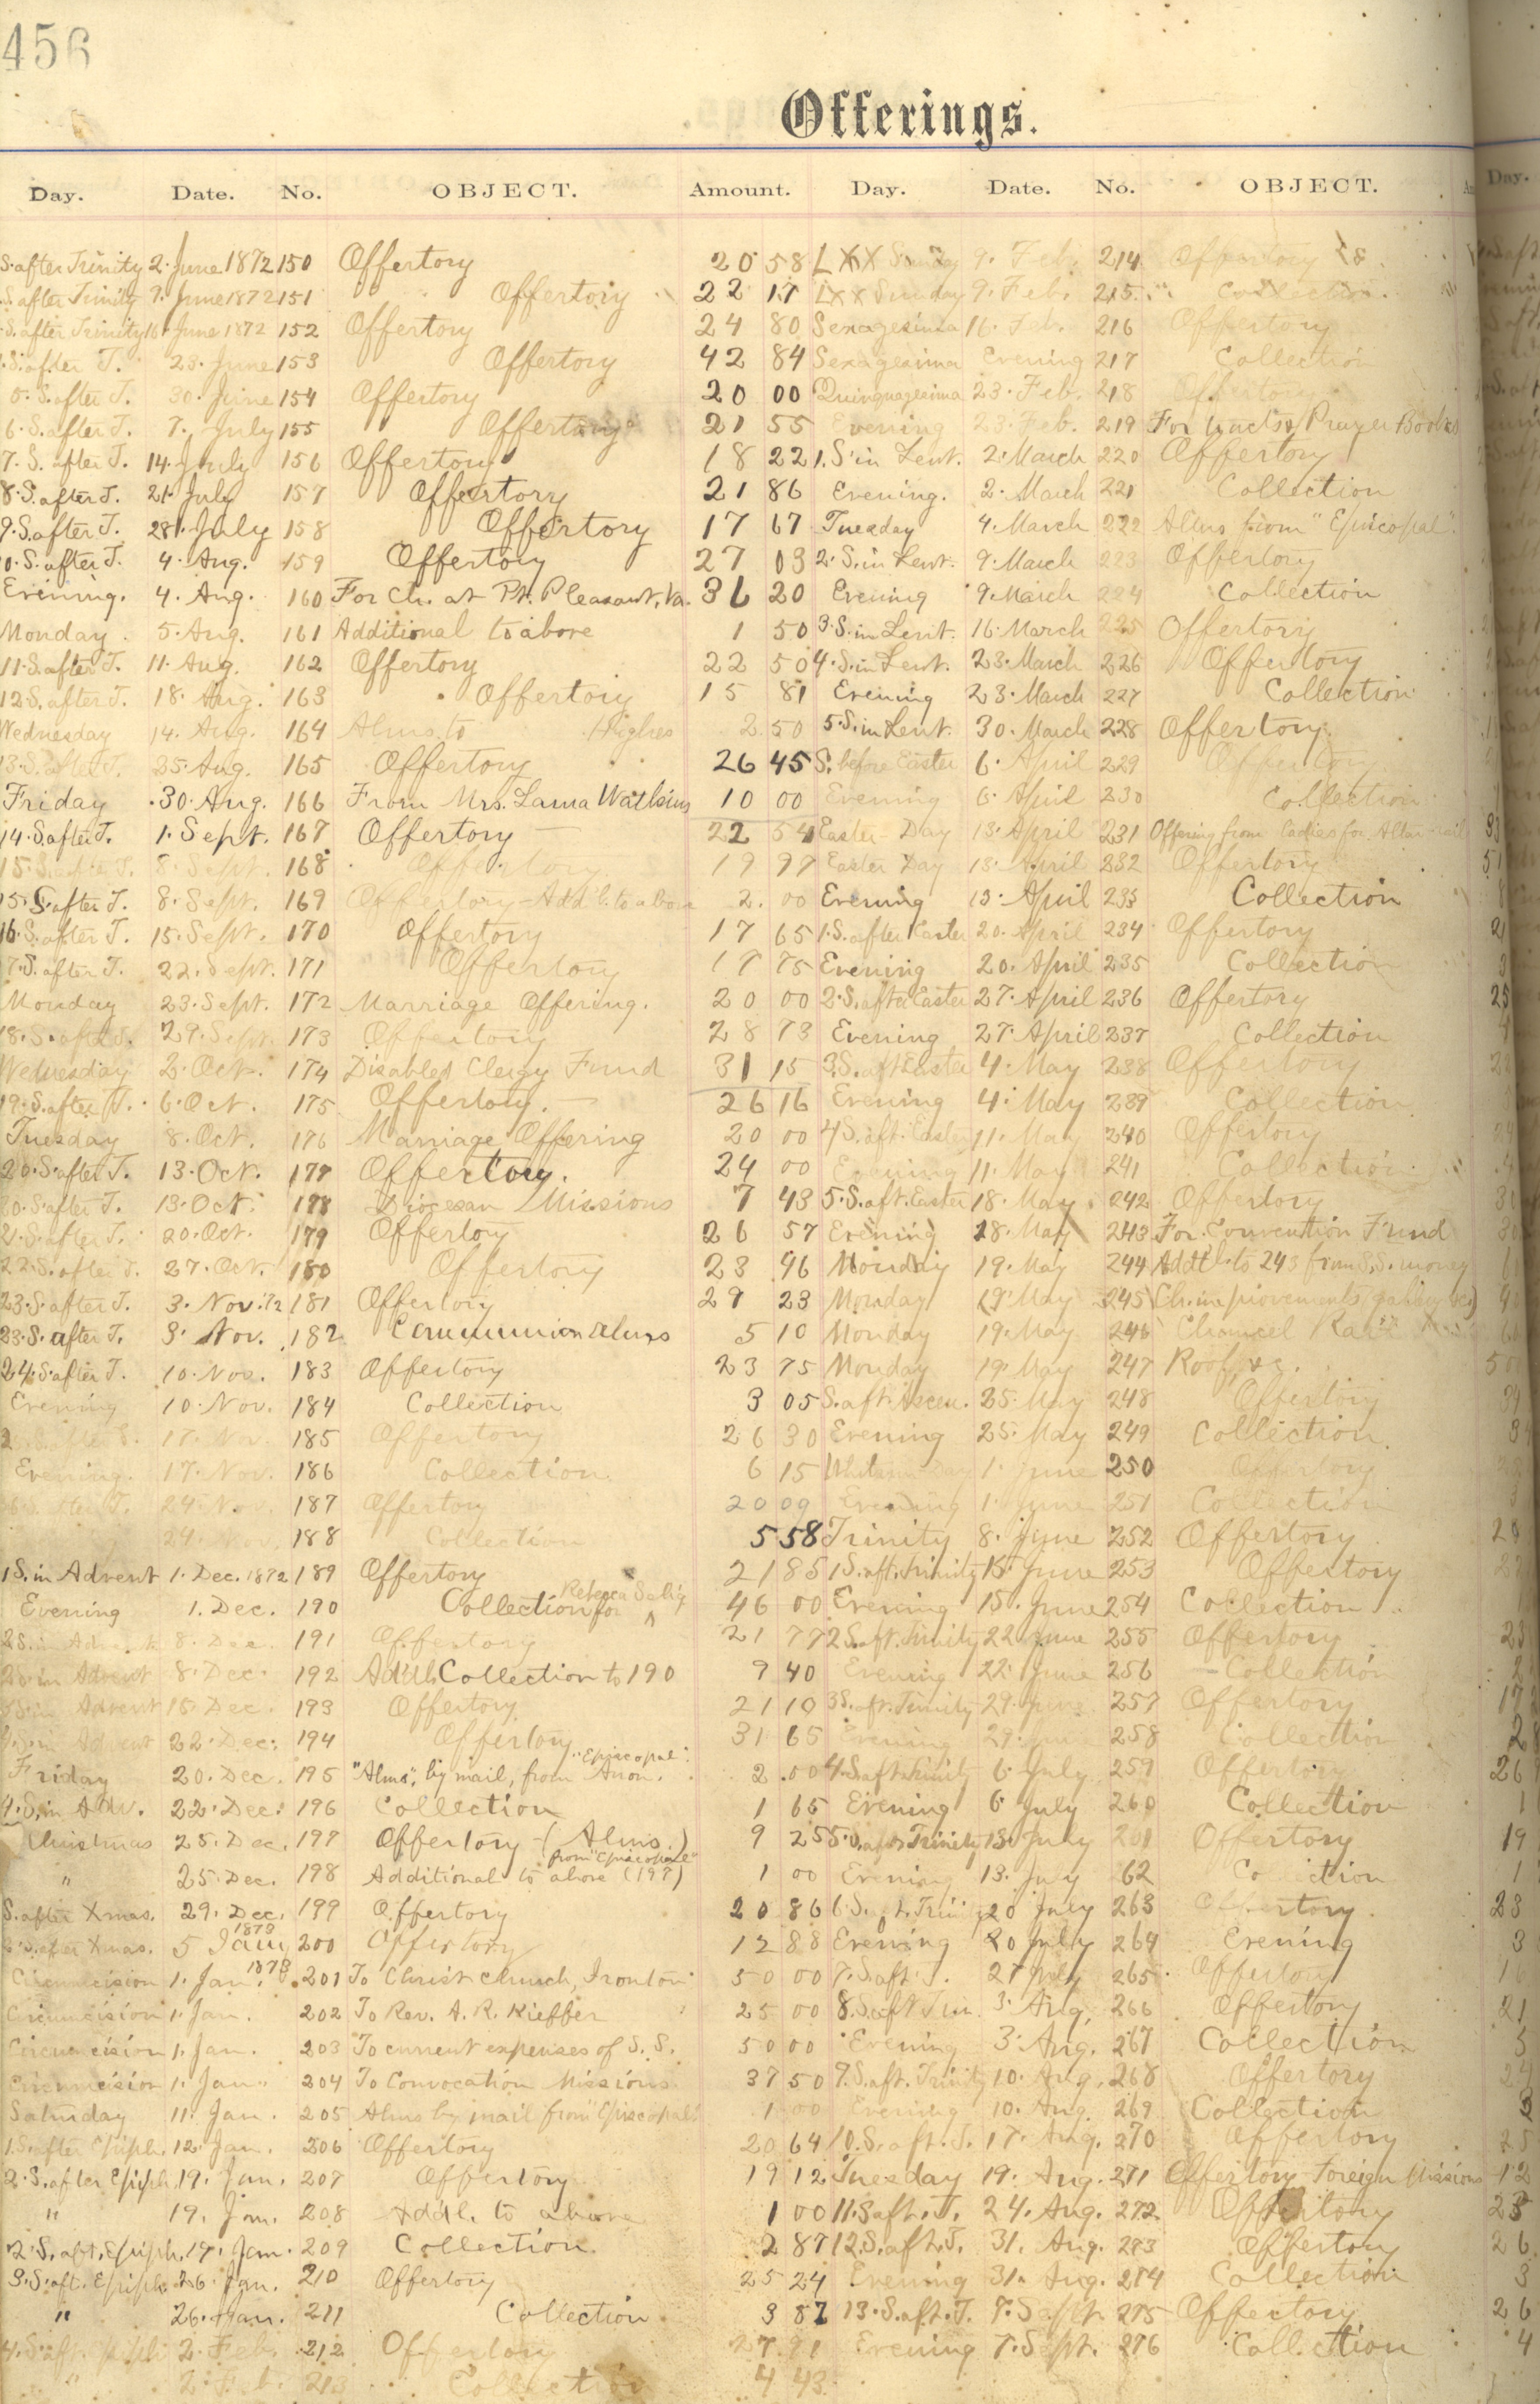 456
Offerings.
Day. Date. No. OBJECT. Amount. Day. Date. No. OBJECT. Day.
S. after Trinity 2. June 1872 150 Offertory 20 58 LXX Sunday 9. Feb. 214 Offertory
S. after Trinity 9. June 1872 151 Offertory 22 17 LXX Sunday 9. Feb. 215 Collection
S. after Trinity 16 June 1872 152 Offertory 24 80 Sexagesima 16. Feb. 216 Offertory
S. after T. 23. June 153 Offertory 42 84 Sexagesima Evening 217 Collection
5. S. after T. 30. June 154 Offertory 20 00 Quinquagesima 23. Feb. 218 Offertory
6. S. after T. 7. July 155 Offertory 21 55 Evening 23. Feb. 219 For tracts & Prayer Books
7. S. after T. 14. July 156 Offertory 18 22 1. S. in Lent. 2. March 220 Offertory
8. S. after T. 21. July 157 Offertory 21 86 Evening. 2. March 221 Collection
9. S. after T. 28. July 158 Offertory 17 67 Tuesday 4. March 222 Alms from "Episcopal".
0. S. after T. 4. Aug. 159 Offertory 27 03 2. S. in Lent. 9. March 223 Offertory
Evening. 4. Aug. 160 For Ch. at Pt. Pleasant, Va. 36 20 Evening 9. March 224 Collection
Monday. 5. Aug. 161 Additional to above 1 50 3. S. in Lent. 16. March 225 Offertory
11. S. after T. 11. Aug. 162 Offertory 22 50 4. S. in Lent. 23. March 226 Offertory
12 S. after T. 18. Aug. 163 Offertory 15 81 Evening 23. March 227 Collection
Wednesday 14. Aug. 164 Alms to Hughes 2 50 5. S. in Lent. 30. March 228 Offertory.
3. S. after T. 25. Aug. 165 Offertory 26 45 S. before Easter 6. April 229 Offertory
Friday 30. Aug. 166 From Mrs. Laura Watkins 10 00 Evening 6. April 230 Collection
14. S. after T. 1. Sept. 167 Offertory 22 54 Easter-Day 13. April 231 Offering from Ladies for Altar rail
15. S. after T. 8. Sept. 168 Offertory 19 97 Easter Day 13. April 232 Offertory
15. S. after T. 8. Sept. 169 Offertory-Add'l. to above 2. 00 Evening 13. April 233 Collection
16. S. after T. 15. Sept. 170 Offertory 17 65 1. S. after Easter 20. April 234 Offertory
7. S. after T. 22. Sept. 171 Offertory 17 75 Evening 20. April 235 Collection
Monday 23. Sept. 172 Marriage Offering. 20 00 2. S. after Easter 27. April 236 Offertory
18. S. after T. 29. Sept. 173 Offertory 28 73 Evening 27. April 237 Collection
Wednesday 2. Oct. 174 Disabled Clergy Fund 31 15 3. S. aft Easter 4. May 238 Offertory
19. S. after T. 6. Oct. 175 Offertory. 26 16 Evening 4. May 239 Collection
Tuesday 8. Oct. 176 Marriage Offering 20 00 4 S. aft. Easter 11. May 240 Offertory
20. S. after T. 13. Oct. 177 Offertory. 24 00 Evening 11. May 241 Collection
20. S. after T. 13. Oct. 178 Diocesan Missions 7 43 5. S. aft. Easter 18. May 242 Offertory
21. S. after T. 20. Oct. 179 Offertory 26 57 Evening 18. May 243 For Convention Fund
22. S. after T. 27. Oct. 180 Offertory 23 96 Monday 19. May 244 Addtl. to 243 from S. S. money
23. S. after T. 3. Nov. 72 181 Offertory 29 23 Monday 19. May 245 (Ch. improvements, gallery &c)
23. S. after T. 3. Nov. 182 Communion Alms 5 10 Monday 19. May 246 Chancel Rail
24. S. after T. 10. Nov. 183 Offertory 23 75 Monday 19. May 247 Roof, &c.
Evening 10. Nov. 184 Collection 3 05 S. aft. Ascen. 25. May 248 Offertory
17. Nov. 185 Offertory 26 30 Evening 25. May 249 Collection.
Evening. 17. Nov. 186 Collection. 6 15 1. June 250 Offertory
24. Nov. 187 Offertory 20 09 Evening 1. June 251 Collection
24. Nov. 188 Collection 5 58 Trinity 8. June 252 Offertory
1 S. in Advent 1. Dec. 1872 189 Offertory 21 85 1 S. aft. Trinity 15. June 253 Offertory
Evening 1. Dec. 190 Collection for Rebecca 46 00 Evening 15. June 254 Collection
2 S. in Advent 8. Dec. 191 Offertory 21 77 2 S. aft. Trinity 22 June 255 Offertory
2 S. in Advent 8. Dec. 192 Addtl. Collection to 190 9 40 Evening 22. June 256 Collection
Advent 15. Dec. 193 Offertory 21 10 3 S. aft. Trinity 29. June 257 Offertory
Advent 22. Dec. 194 Offertory 31 65 Evening 29. June 258 Collection
Friday 20. Dec. 195 "Alms", by mail, from Anon. "Episcopal". 2. 00 4. S. aft. Trinity 6. July 259 Offertory
4. S. in Adv. 22. Dec. 196 Collection 1 65 Evening 6 July 260 Collection
Christmas 25. Dec. 197 Offertory - (Alms.) 9 25 5. S. aft. Trinity 13. July 261 Offertory
" 25. Dec. 198 Additional to above (197) from "Episcopal" 1 00 Evening 13. July 62 Collection
S. after Xmas. 29. Dec. 199 Offertory 20 86 6. S. aft. Trin 20 July 263 Offertory.
S. after Xmas. 5 Jan, 1873 200 Offertory 12 88 Evening 20 July 264 Evening
Circumcision 1. Jan. 1873 201 To Christ Church, Ironton 50 00 7. S. aft. T. 27 July 265 Offertory
Circumcision 1. Jan. 202 To Rev. A. R. Kieffer 25 00 8. S. aft Trin. 3. Aug, 266 Offertory
Circumcision 1. Jan. 203 To current expenses of S. S. 50 00 Evening 3. Aug. 267 Collection
Circumcision 1. Jan. 204 To Convocation Missions 37 50 9. S. aft. Trinity 10. Aug. 268 Offertory
Saturday 11. Jan. 205 Alms by mail from "Episcopal" 1 00 Evening 10. Aug. 269 Collection
1. S. after Epiph. 12. Jan. 206 Offertory 20 64 10. S. aft. T. 17. Aug. 270 Offertory
2. S. after Epiph. 19. Jan. 207 Offertory 19 12 Tuesday 19. Aug. 271 Offertory Foreign Missions 12
" 19. Jan. 208 Addl. to above 1 00 11. S. aft. T. 24. Aug. 272 Offertory
2. S. aft. Epiph. 19. Jan. 209 Collection 2 87 12. S. aft. T. 31. Aug. 273 Offertory 26
3. S. aft. Epiph. 26. Jan. 210 Offertory 25 24 Evening 31. Aug. 274 Collection 3
" 26. Jan. 211 Collection 3 82 13. S. aft. T. 7. Sept. 275 Offertory 26
4. S. aft. Epiph 2. Feb. 212 Offertory 27 91 Evening 7. Sept. 276 Collection 4
" 2. Feb. 213 Collection 4 43